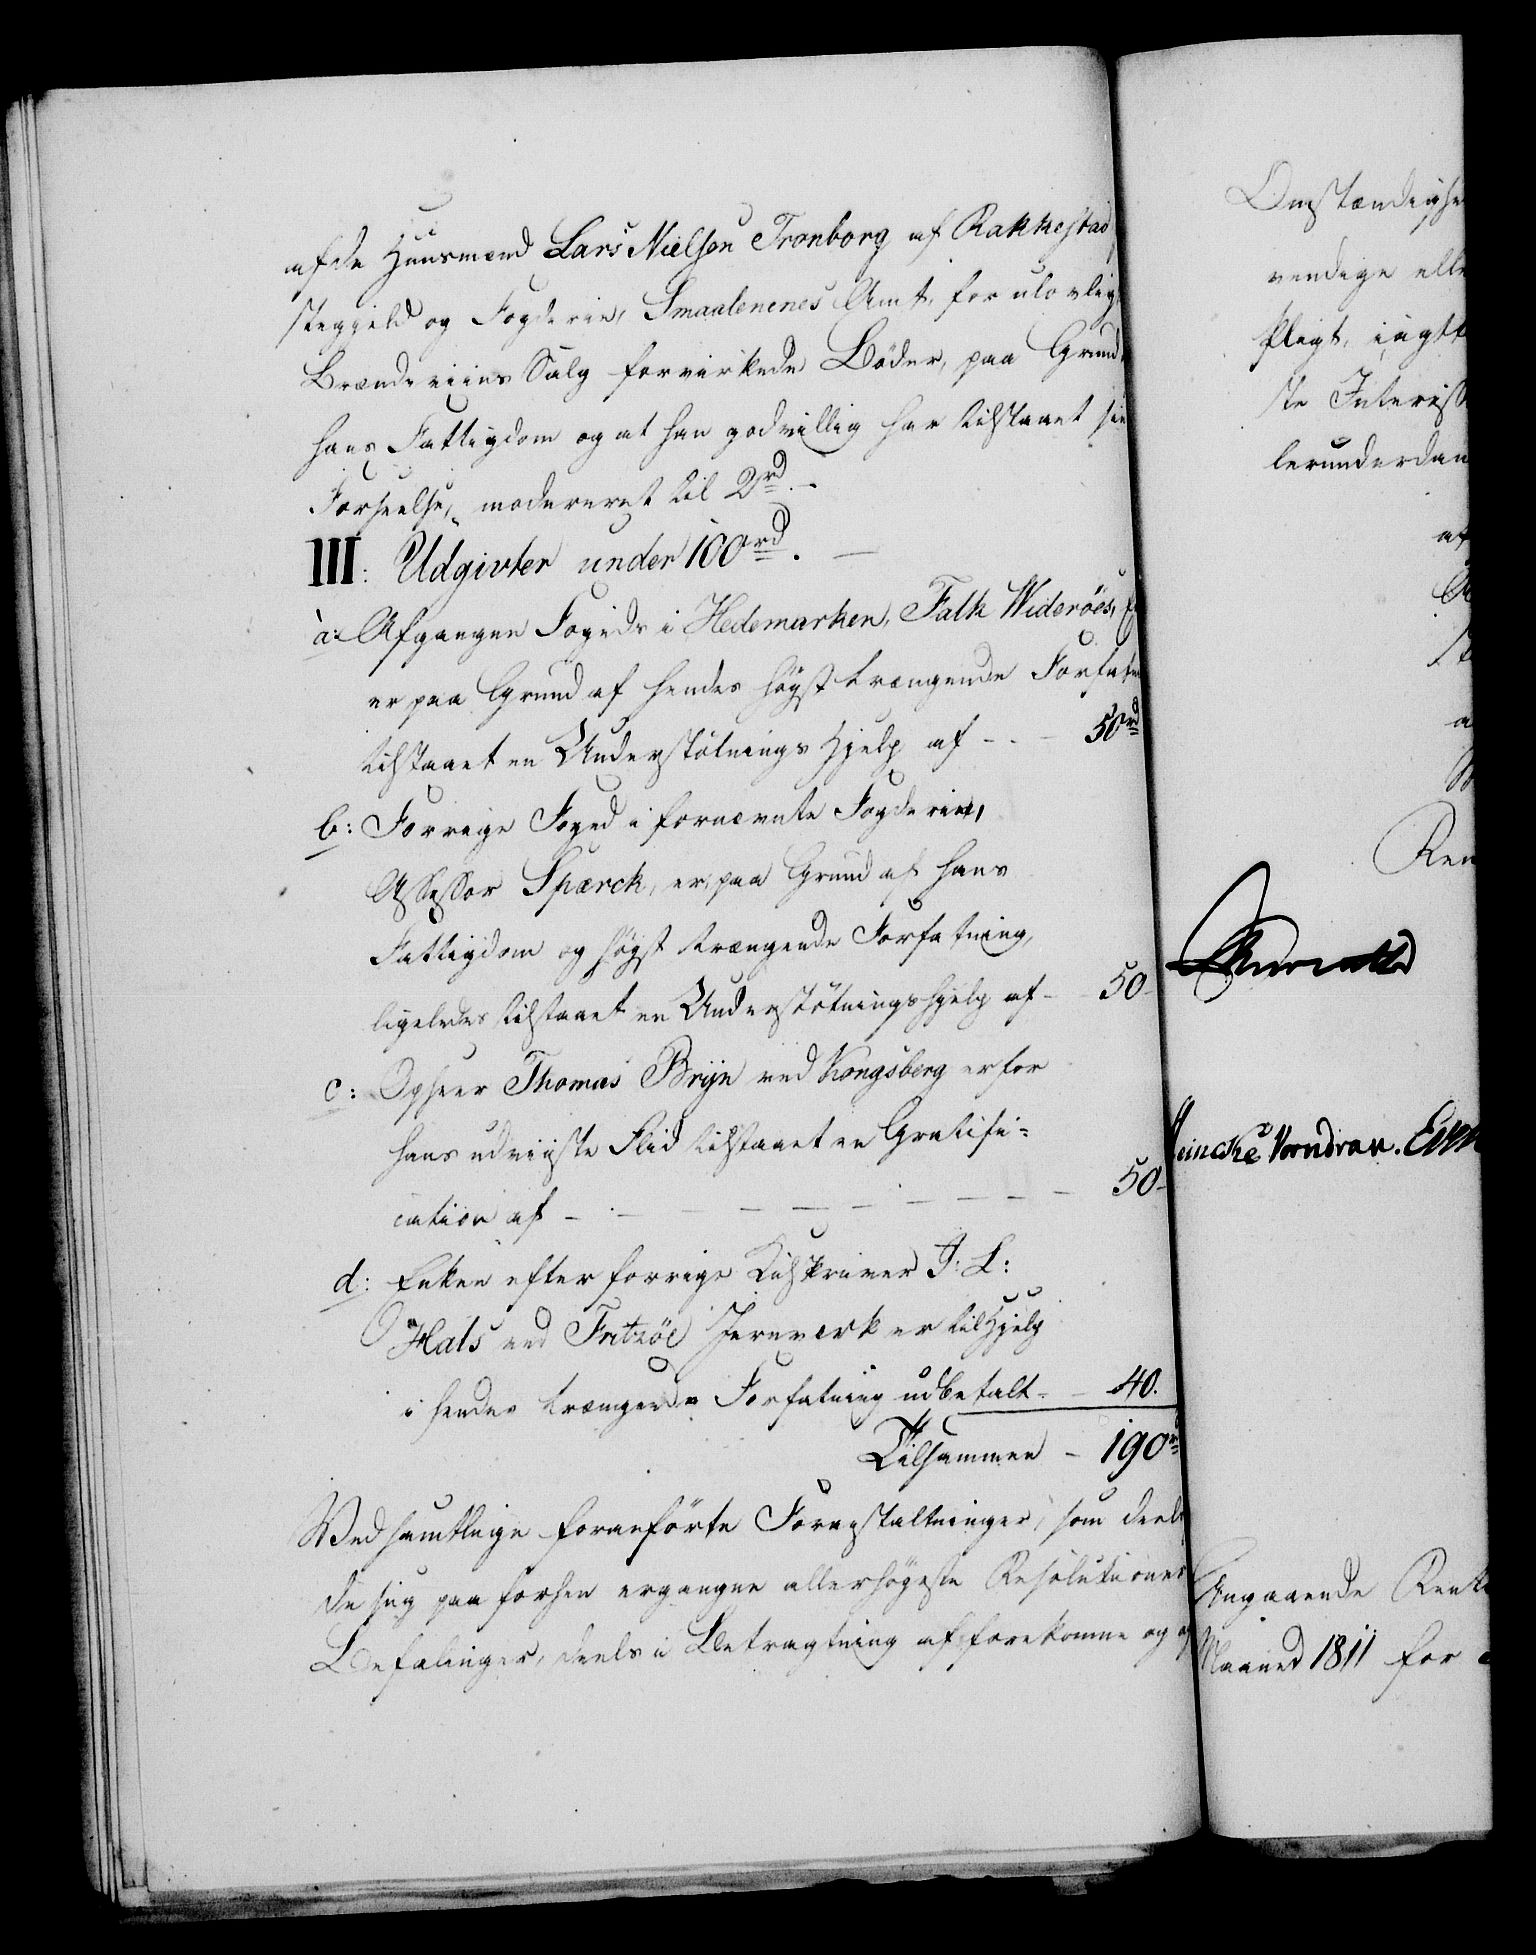 af de Huusmænd Lars Nielsen Tronborg af Rakkestad
stegjeld og Fogderie, Smaalenenes Amt, for ulovlig
Brændeviins Salg forvirkede Böder, paa Grund
hans Fattigdom og at han godvillig har tilstaaet sin
Forseelse, modereret til 2rd. -
III: Udgivter under 100rd. -
a: Afgangne Fogeds i Hedemarken, Falk Wideröes,
er paa Grund af hendes högst trængende Forfatn
tilstaaet en Understötnings Hjelp af - - - 50rd
b: Forrige Foged i fornævnte Fogderie,
Assessor Spærck, er, paa Grund af hans
Fattigdom og högst trængende Forfatning,
ligeledes tilstaaet en Understötningshjelp af - - 50-
c: Opseer Thomas Bryn ved Kongsberg er for
hans udviiste Fliid tilstaaet en Gratifi=
cation af - - - - - - - - - 50-
d: Enken efter forrige Tilskriver J: L:
Hals ved Fritzöe Jernværk er til Hjelp
i hendes trængende Forfatning udbetalt - - 40.
Tilsammen - 190rd
Ved samtlige foranförte Foranstaltninger, som deels
de sig paa forhen ergangne allerhögeste Resolutioner
Befalinger, deels i Betragtning af forekomne og
Omstændighe
vendige elle
Pligt, iagtt
ste Interess
lerunderdan
af
a
Ren
eincke Vorndran.
Angaaende Rente
Maaned 1811 for